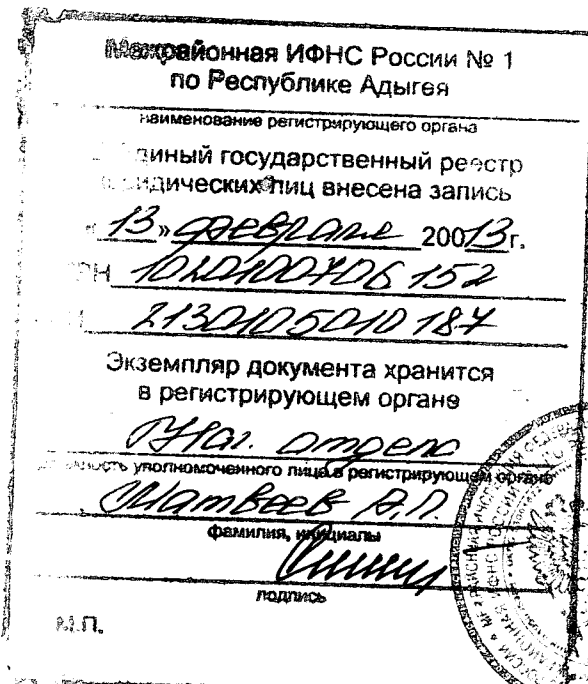 Межрайонная ИФНС России № 1
по Республике Адыгея
наименование регистрирующего органа
Единый государственный реестр
юридических лиц внесена запись
«13» февраля 20013г.
РН 1020100706152
2130105010187
Экземпляр документа хранится
в регистрирующем органе
Нач. отдела
должность уполномоченного лица в регистрирующем органе
Матвеев А.П.
фамилия, инициалы
подпись
М.П.